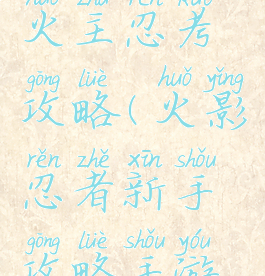 huǒ zhǔ rěn kǎo
火主忍考
gōng lüè huǒ yǐng
攻略(火影
rěn zhě xīn shǒu
忍者新手
gōng lüè shǒu yóu
攻略手游